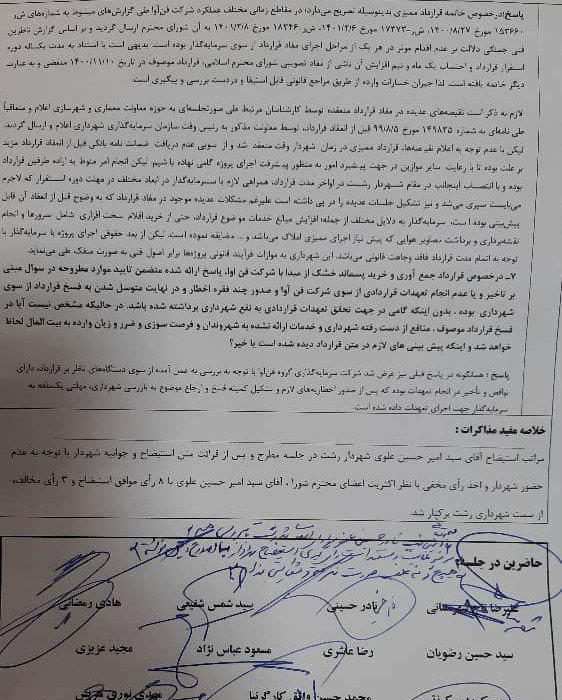 پاسخ:درخصوص خاتمه قرارداد ممیزی بدینوسیله تصریح می‌دارد؛ در مقاطع زمانی مختلف عملکرد شرکت فن‌آوا طی گزارش‌های مبسوط به شماره‌های ش‌ر:
۱۵۳۶۶۰ مورخ ۱۴۰۰/۸/۲۷، ش‌ر:۱۷۳۷۳ مورخ ۱۴۰۱/۲/۶، ش‌ر ۱۸۳۴۶ مورخ ۱۴۰۱/۲/۸ به آن شورای محترم ارسال گردید و بر اساس گزارش ناظرین
فنی جملگی دلالت بر عدم اقدام موثر در هر یک از مراحل اجرای مفاد قرارداد از سوی سرمایه‌گذار بوده است. بدیهی است با استناد به مدت یکساله دوره
استقرار قرارداد و احتساب یک ماه و نیم افزایش آن ناشی از مفاد تصویبی شورای محترم اسلامی، قرارداد موصوف در تاریخ ۱۴۰۰/۱۱/۱۰ منقضی و به عبارت
دیگر خاتمه یافته است. لذا جبران خسارات وارده از طریق مراجع قانونی قابل استیفا و دردست بررسی و پیگیری است.
لازم به ذکر است نقیصه‌های عدیده در مفاد قرارداد منعقده توسط کارشناسان مرتبط طی صورتجلسه‌ای به حوزه معاونت معماری و شهرسازی اعلام و متعاقباً
طی نامه‌ای به شماره ۱۴۹۸۳۵ مورخ ۹۹/۸/۵ قبل از انعقاد قرارداد، توسط معاونت مذکور به رئیس وقت سازمان سرمایه‌گذاری شهرداری اعلام و ارسال گردید.
لیکن با عدم توجه به اعلام نقیصه‌ها، قرارداد ممیزی در زمان شهردار وقت منعقد شد و از سویی عدم دریافت ضمانت نامه بانکی قبل از انعقاد قرارداد مزید
بر علت بوده تا با رعایت سایر موازین در جهت پیشبرد امور به منظور پیشرفت اجرای پروژه گامی نهاده یا شیم لیکن انجام امر منوط به اراده طرفین قرارداد
بوده و با انتصاب اینجانب در مقام شهردار رشت در اواخر مدت قرارداد، همراهی لازم با سرمایه‌گذار در ابعاد مختلف در مهلت دوره استقرار که لاجرم
می‌بایست سپری می‌شد و نیز تشکیل جلسات عدیده را در پی داشته است علیرغم مشکلات عدیده موجود در مفاد قرارداد که به وضوح قبل از انعقاد آن قابل
پیش‌بینی بوده است، سرمایه‌گذار به دلایل مختلف از جمله؛ افزایش مبالغ خدمات موضوع قرارداد، حتی از خرید اقلام سخت افزاری شامل سرورها و انجام
نقشه‌برداری و برداشت تصاویر هوایی که پیش نیاز اجرای ممیزی املاک می‌باشد و ... مضایقه نموده است. لیکن از بعد حقوقی اجرای پروژه با سرمایه‌گذار با
توجه به اتمام مدت قرارداد فاقد وجاهت قانونی می‌باشد. این شهرداری به موازات فرآیند قانونی پروژه‌ها برابر اصول فنی به صورت منفک طی می‌نماید
۷- درخصوص قرارداد جمع آوری و خرید پسماند خشک از مبدا با شرکت فن آوا، پاسخ ارائه شده متضمن تایید موارد مطروحه در سوال مبنی
بر تاخیر و یا عدم انجام تعهدات قراردادی از سوی شرکت فن آوا و صدور چند فقره اخطار و در نهایت متوسل شدن به فسخ قرارداد از سوی
شهرداری بوده، بدون اینکه گامی در جهت تحقق تعهدات قراردادی به نفع شهرداری برداشته شده باشد. در حالیکه مشخص نیست آیا در
فسخ قرارداد موصوف، منافع از دست رفته شهرداری و خدمات ارائه نشده به شهروندان و فرصت سوزی و ضرر و زیان وارده به بیت المال لحاظ
خواهد شد و اینکه پیش بینی های لازم در متن قرارداد دیده شده است یا خیر؟
پاسخ : همانگونه در پاسخ قبلی نیز عرض شد شرکت سرمایه‌گذاری گروه فن‌آوا با توجه به بررسی به عمل آمده از سوی دستگاه‌های ناظر بر قرارداد، دارای
نواقص و تأخیر در انجام تعهدات بوده که پس از صدور اخطاریه‌های لازم و تشکیل کمیته فسخ و ارجاع موضوع به بازرسی شهرداری، مهلتی یک‌ماهه به
سرمایه‌گذار جهت اجرای تعهدات داده شده است.
خلاصه مفید مذاکرات :
مراتب استیضاح آقای سید امیر حسین علوی شهردار رشت در جلسه مطرح و پس از قرائت متن استیضاح و جوابیه شهردار با توجه به عدم
حضور شهردار و اخذ رأی مخفی با نظر اکثریت اعضای محترم شورا، آقای سید امیر حسین علوی با ۸ رأی موافق استیضاح و ۳ رأی مخالف،
از سمت شهرداری رشت برکنار شد.
حاضرین در جلسه:
نادر حسینی سید شمس شفیعی هادی رمضانی
سید حسین رضویان رضا عاشری مسعود عباس نژاد مجید عزیزی
محمد حسین واثق کارگرنیا